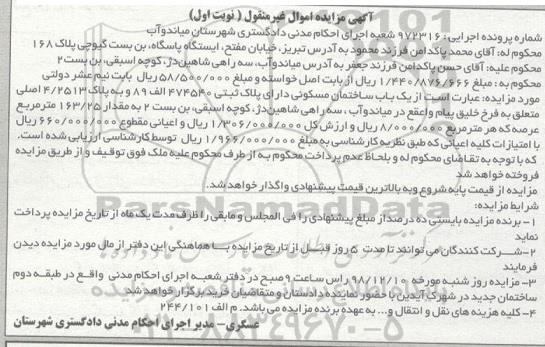 آگهی مزایده اموال غیرمنقول ( نوبت اول)
شماره پرونده اجرایی : ۹۷۲۳۱۶ شعبه اجرای احکام مدنی دادگستری شهرستان میاندوآب
محکوم له: آقای محمد پاکدامن فرزند محمود به آدرس تبریز، خیابان مفتح، ایستگاه پاسگاه، بن بست گیوچی پلاک ۱۶۸
محکوم علیه: آقای حسن پاکدامن فرزند جعفر به آدرس میاندوآب، سه راهی شاهین دژ، کوچه اسبقی، بن بست ۲
محکوم به : مبلغ ۱/۴۴۰/۸۷۶/۶۶۶ ریال از بابت اصل خواسته و مبلغ ۵۸/۵۰۰/۰۰۰ ریال بابت نیم عشر دولتی
مورد مزایده: عبارت است از یک باب ساختمان مسکونی دارای پلاک ثبتی ۴۷۴۵۴۰ الف ۸۹ و به پلاک ۴/۲۵۱۳ اصلی
متعلق به فرخ خلیق پیام واعقع در میاندوآب ، سه راهی شاهین دژ، کوچه اسبقی، بن بست ۲ به مقدار ۱۶۳/۲۵ مترمربع
عرصه که هر متر مربع ۸/۰۰۰/۰۰۰ ریال و ارزش کل ۱/۳۰۶/۰۰۰/۰۰۰ ریال و اعیانی مقطوع ۶۶۰/۰۰۰/۰۰۰ ریال
با امتیازات کلیه اعیانی که طبق نظریه کارشناسی به مبلغ ۱/۹۶۶/۰۰۰/۰۰۰ ریال توسط کارشناسی ارزیابی شده است.
که با توجه به تقاضای محکوم له و بلحاظ عدم پرداخت محکوم به از طرف محکوم علیه ملک فوق توقیف و از طریق مزایده
فروخته خواهد شد
مزایده از قیمت پایه شروع و به بالاترین قیمت پیشنهادی واگذار خواهد شد.
شرایط مزایده:
۱- برنده مزایده بایستی ده درصد از مبلغ پیشنهادی را فی المجلس و مابقی را ظرف مدت یک ماه از تاریخ مزایده پرداخت
نماید
۲-شرکت کنندگان می توانند تا مدت ۵ روز قبل از تاریخ مزایده با هماهنگی این دفتر از مال مورد مزایده دیدن
فرمایند
۳- مزایده روز شنبه مورخه ۹۸/۱۲/۱۰ راس ساعت ۹ صبح در دفتر شعبه اجرای احکام مدنی واقع در طبقه دوم
ساختمان جدید در شهرک آیدین با حضور نماینده دادستان و متقاضیان خرید برگزار خواهد شد
۴- کلیه هزینه های نقل و انتقال و... به عهده برنده مزایده می باشد. م الف ۲۴۴/۱۰۱
عسکری - مدیر اجرای احکام مدنی دادگستری شهرستان
ParsNamadData
۰۲۱-۸۸۳۴۹۶۷۰-۵